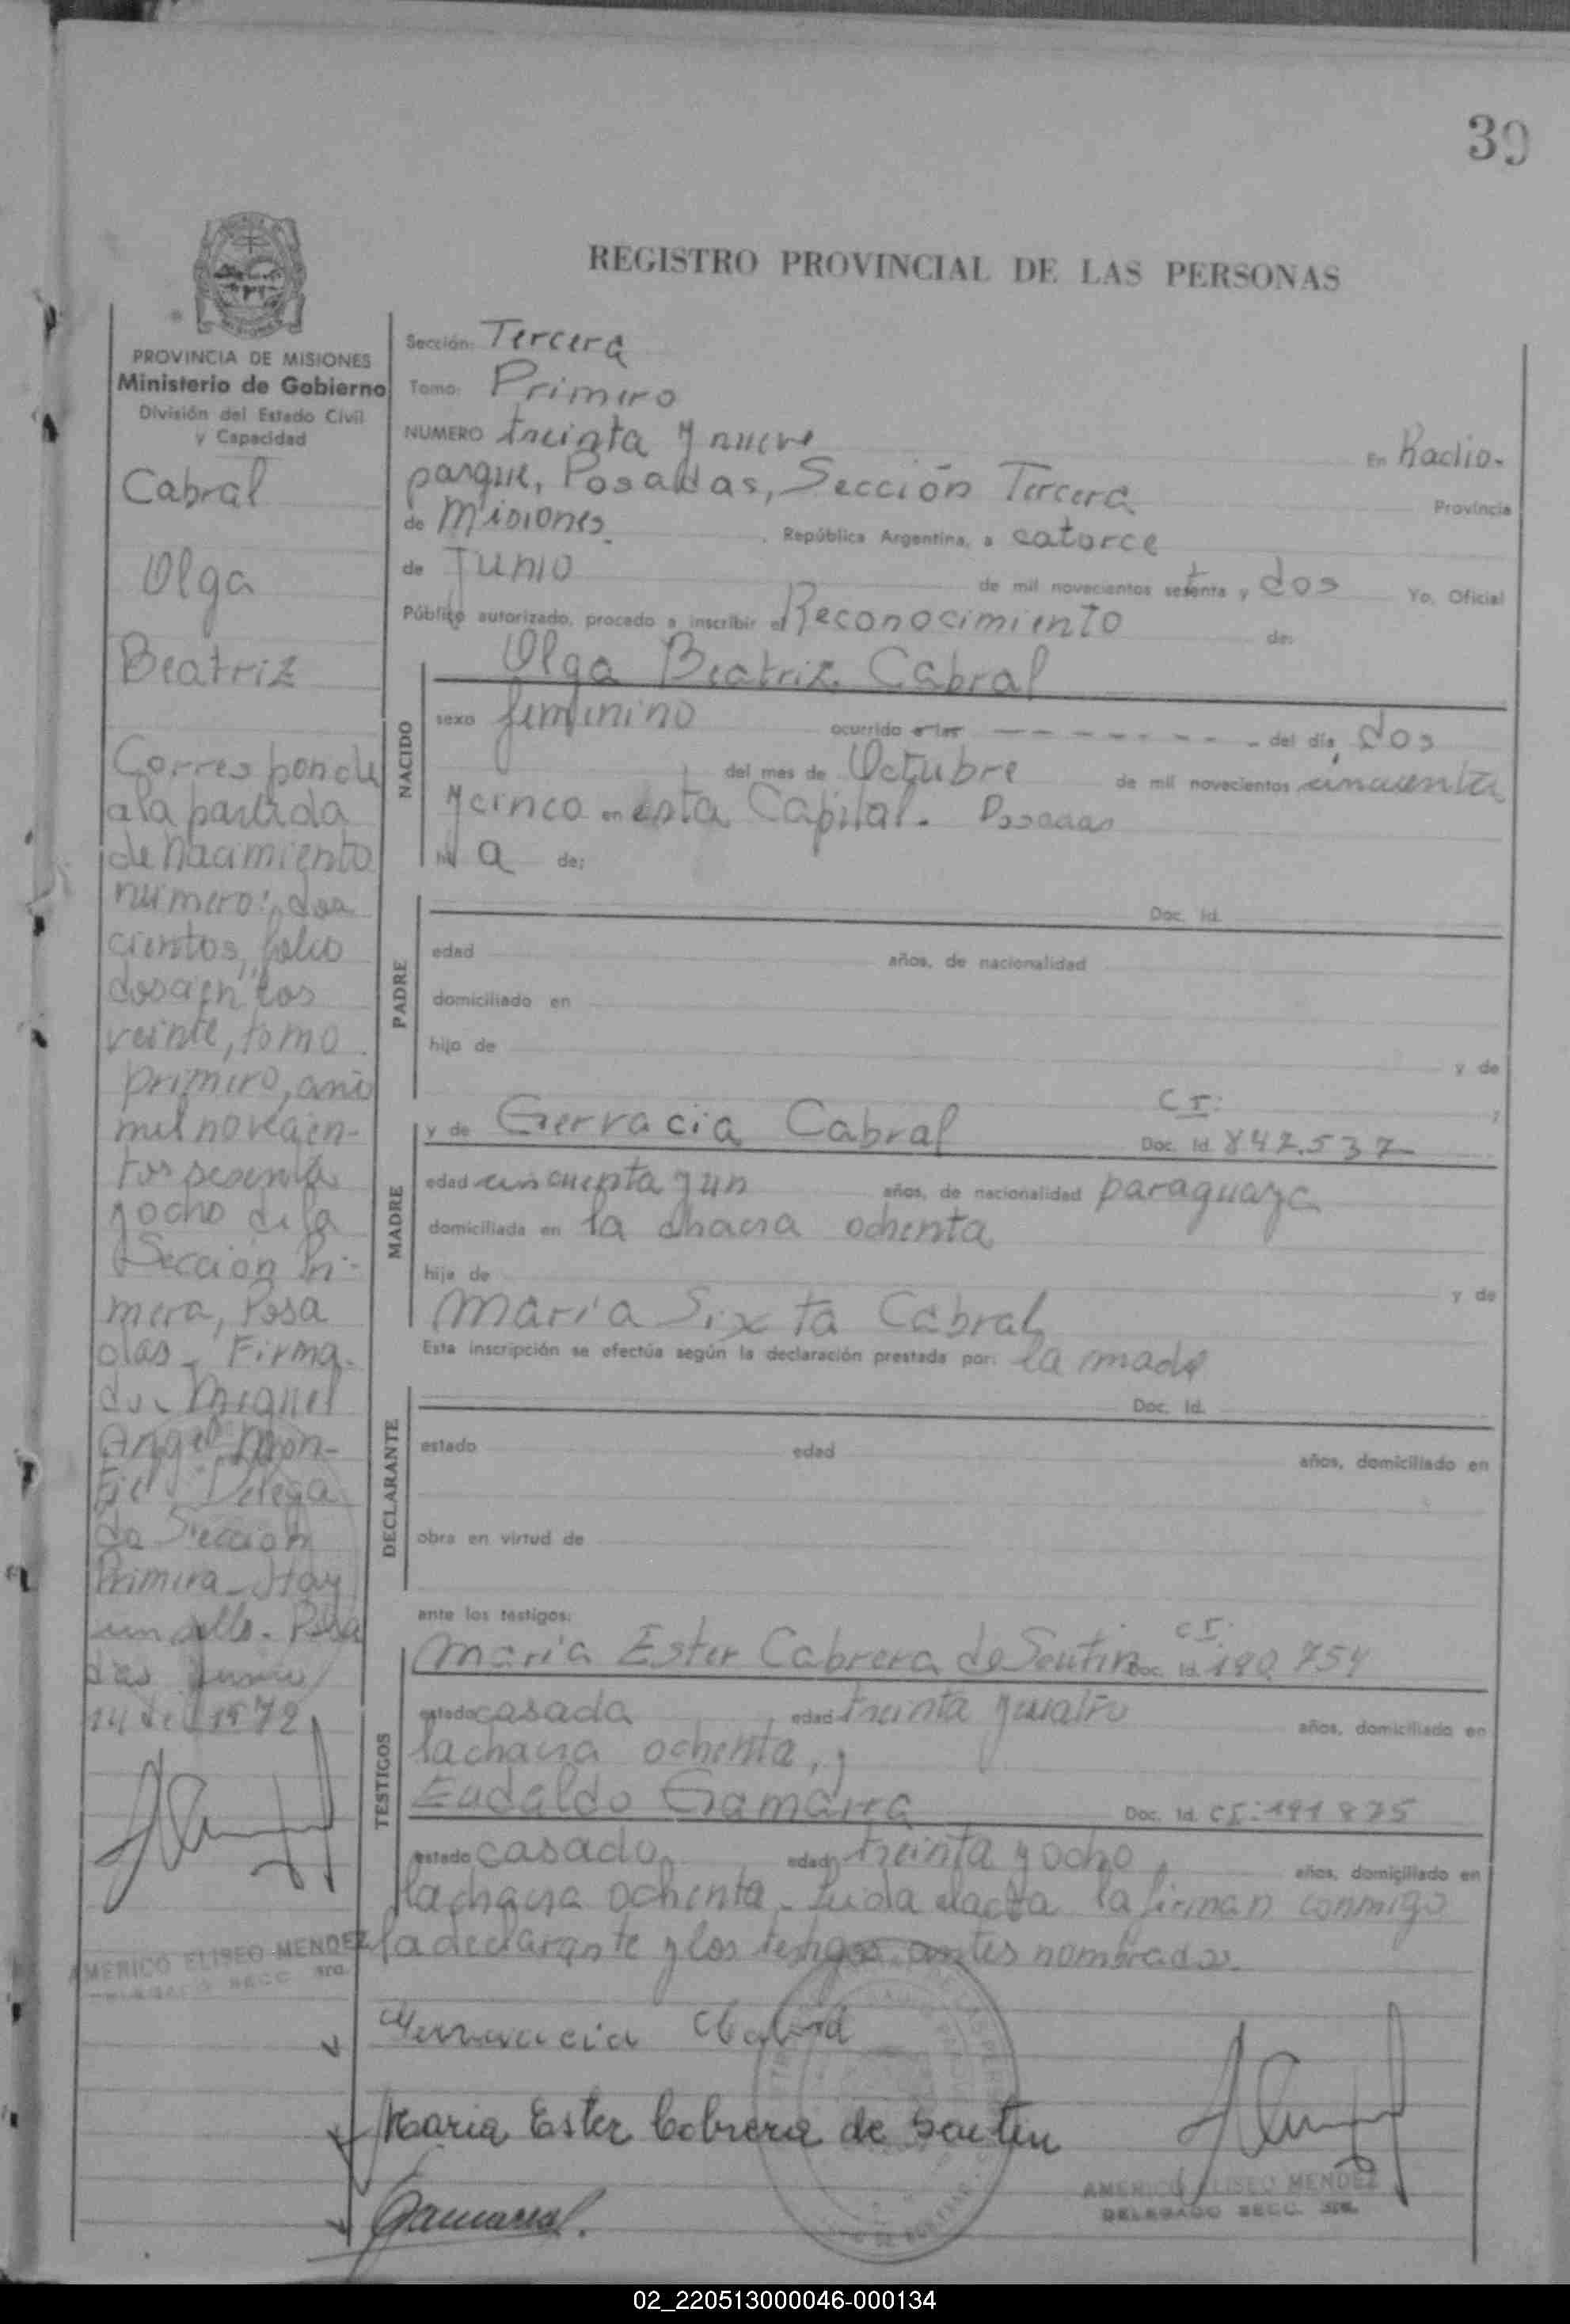 39
REGISTRO PROVINCIAL DE LAS PERSONAS
PROVINCIA DE MISIONES
Ministerio de Gobierno
División del Estado Civil
y Capacidad
Cabral
Olga
Beatriz
Corresponde
a la partida
de Nacimiento
número: dos
cientos, folio
doscientos
veinte, tomo
primero, año
mil novecien-
tos sesenta
y ocho de la
Sección Pri-
mera, Posa
das - Firma-
do. Miguel
Angel
Delega
do Sección
Primera - Hay
un sello. Posa
das Junio
14 de 1972
AMERICO ELISEO MENDEZ
DELEGADO SECC. 3ra.
Sección: Tercera
Tomo: Primero
NUMERO treinta y nueve En Radio-
parque, Posadas, Sección Tercera Provincia
de Misiones. , República Argentina, a catorce
de Junio de mil novecientos setenta y dos Yo, Oficial
Público autorizado, procedo a inscribir el Reconocimiento de:
NACIDO
Olga Beatriz Cabral
sexo femenino ocurrido a las - - - - - - - - del día, dos
del mes de Octubre de mil novecientos cincuenta
y cinco en esta Capital. Posadas
hij a de:
PADRE
Doc. Id.
edad años, de nacionalidad
domiciliado en
hijo de y de
MADRE
C I:
y de Gervacia Cabral Doc. Id. 842.537
edad cincuenta y un años, de nacionalidad paraguaya
domiciliada en la chacra ochenta
hija de y de
Maria Sixta Cabral
Esta inscripción se efectúa según la declaración prestada por: la madre
DECLARANTE
Doc. Id.
estado edad años, domiciliado en
obra en virtud de
ante los testigos:
TESTIGOS
C I:
Maria Ester Cabrera de Sentin Doc. Id. 180.754
estado casada edad treinta y cuatro años, domiciliado en
la chacra ochenta, y
Eudaldo Gamarra Doc. Id. CI: 191875
estado casado, edad treinta y ocho, años, domiciliado en
la chacra ochenta. Leida el acta la firman conmigo
la declarante y los testigos antes nombrados.
Gerrvacia Cabral
Maria Ester Cabrera de Sentin
Gamarra
AMERICO ELISEO MENDEZ
DELEGADO SECC. 3ra.
02_220513000046-000134